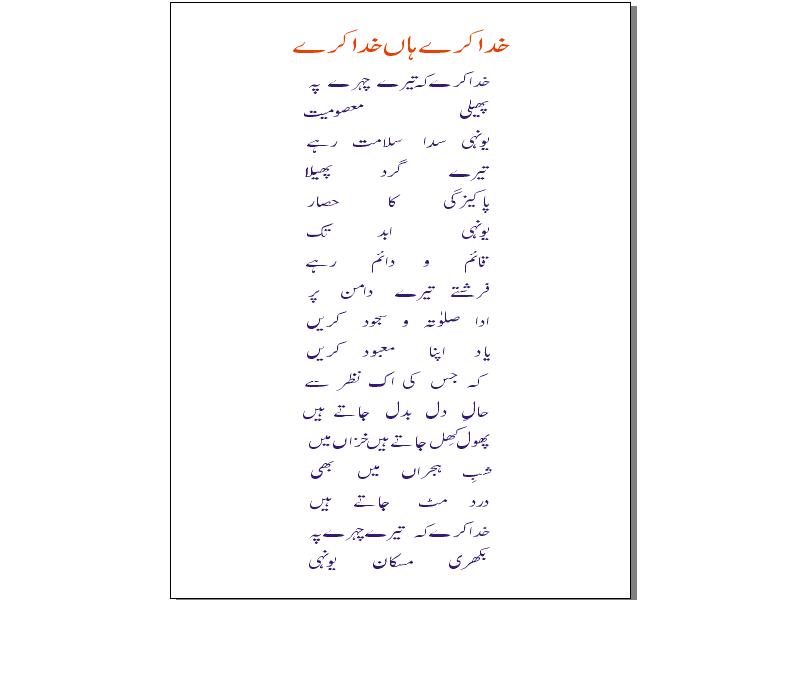 خدا کرے ہاں خدا کرے
خدا کرے کہ تیرے چہرے پہ
پھیلی معصومیت
یونہی سدا سلامت رہے
تیرے گرد پھیلا
پاکیزگی کا حصار
یونہی ابد تک
قائم و دائم رہے
فرشتے تیرے دامن پر
ادا صلوٰتہ و سجود کریں
یاد اپنا معبود کریں
کہ جس کی اک نظر سے
حالِ دل بدل جاتے ہیں
پھول کھِل جاتے ہیں خزاں میں
شبِ ہجراں میں بھی
درد مٹ جاتے ہیں
خدا کرے کہ تیرے چہرے پہ
بکھری مسکان یونہی